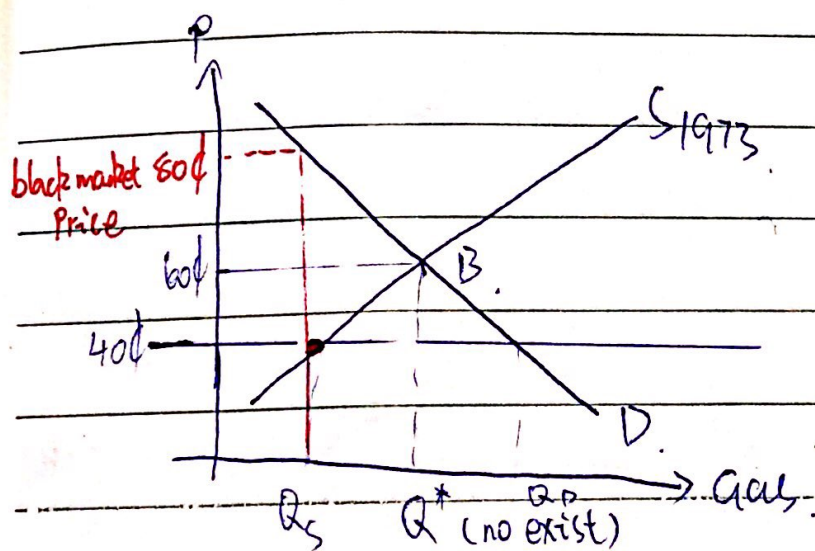 P
S1973
black market 80¢
Price
60¢
B
40¢
D
Qs
Q*
QD
Gas
(no exist)